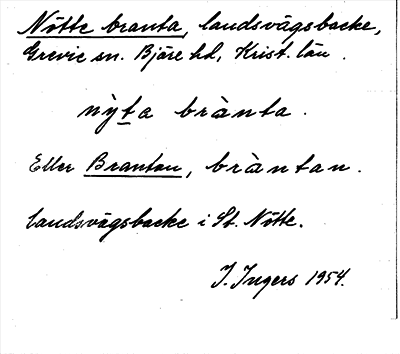 Nötte branta, landsvägsbacke,
Grevie sn. Bjäre hd, Krist. län.
nỳta brànta.
Eller Brantan, bràntan.
landsvägsbacke i St. Nötte.
I. Ingers 1954.